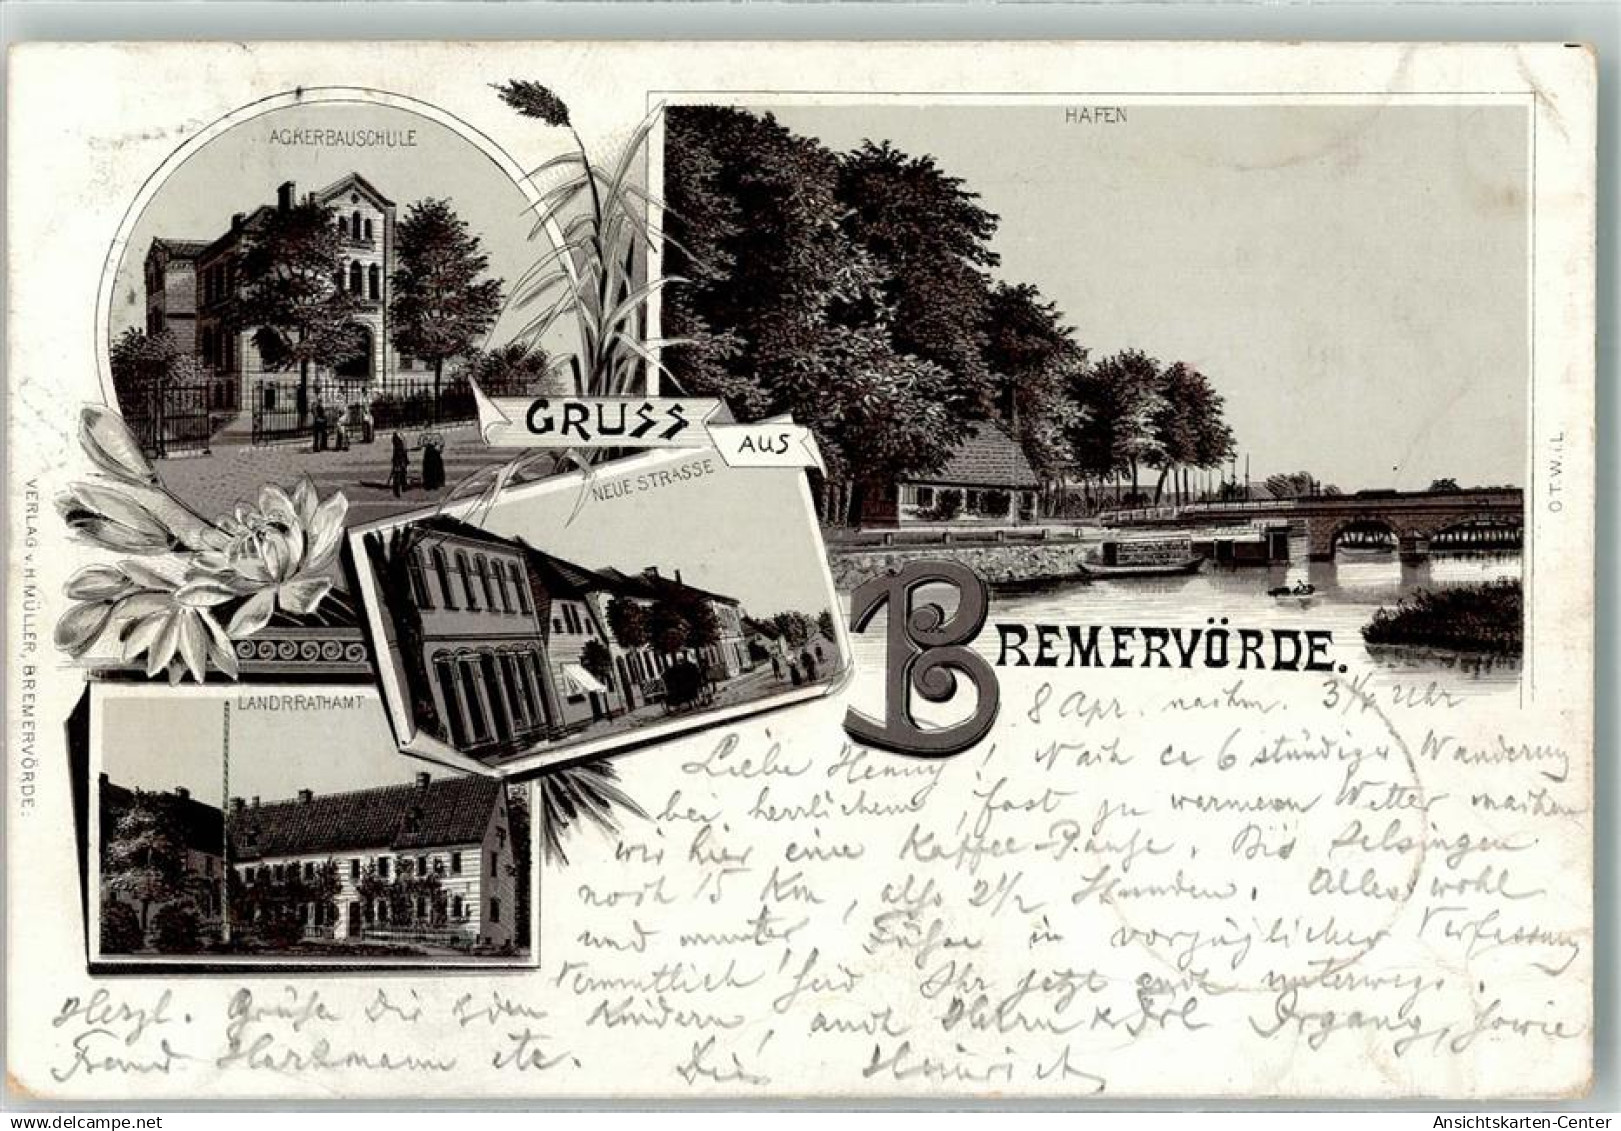 ACKERBAUSCHULE
HAFEN
GRUSS AUS
NEUE STRASSE
BREMERVÖRDE.
LANDRRATHAMT
VERLAG v. H. MÜLLER, BREMERVÖRDE.
O.T.W.i.L.
8 Apr. nachm. 3 1/4 Uhr
Liebe Henny! Nach ca 6 stündiger Wanderung
bei herrlichem, fast zu warmem Wetter machen
wir hier eine Kaffee-Pause. Bis Selsingen
noch 15 Km, also 2 1/2 Stunden. Alles wohl
und munter, Füsse in vorzüglicher Verfassung
Vermutlich seid Ihr jetzt auch unterwegs.
Herzl. Grüsse Dir & den Kindern, auch Herrn & Frl Irgang, sowie
Freund Harkmann etc. Dein Heinrich
Ansichtskarten-Center